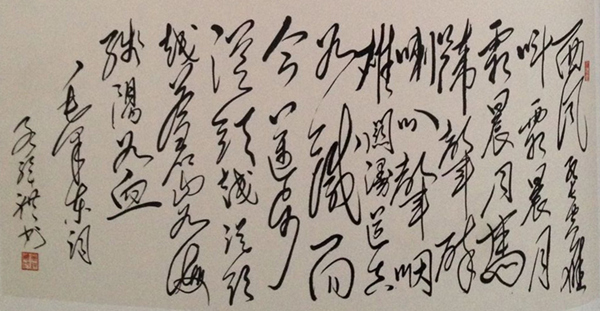 西风烈长空雁
叫霜晨月
霜晨月马
蹄聲碎
喇叭聲咽
雄關漫道真
如鐵而
今迈步
從頭越從頭
越苍山如海
残陽如血
毛泽东词
书